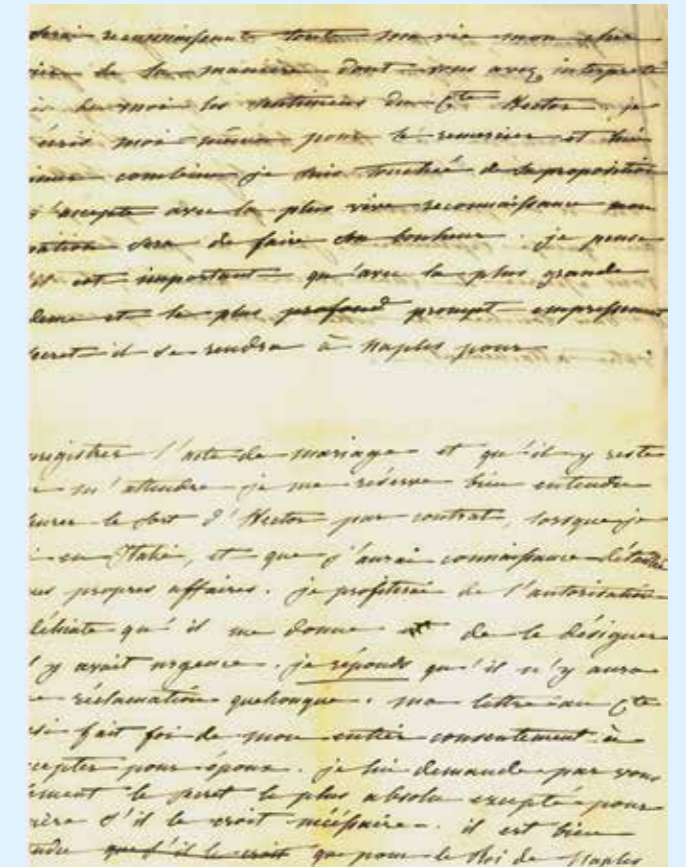 serai reconnaissante toute ma vie mon cher
de la manière dont vous avez interprété
moi les sentimens du Cte Hector. je
écris moi même pour le remercier et lui
combien je suis touchée de sa proposition
j'accepte avec la plus vive reconnaissance mon
sera de faire son bonheur. je pense
il est important qu'avec la plus grande
et le plus profond prompt empressement
secret il se rendra à Naples pour
enregistrer l'acte de mariage et qu'il y reste
m'attendre je me réserve bien entendu
le sort d'Hector par contrat, lorsque je
en Italie, et que j'aurai connaissance détaillée
propres affaires. je profiterai de l'autorisation
délicate qu'il me donne de le désigner
'y avait urgence. je réponds qu'il n'y aura
réclamation quelconque. ma lettre au Cte
fait foi de mon entier consentement à
accepter pour époux. je lui demande par vous
le secret le plus absolu excepté pour
s'il le croit nécessaire. il est bien
que s'il le croit que pour le Roi de Naples